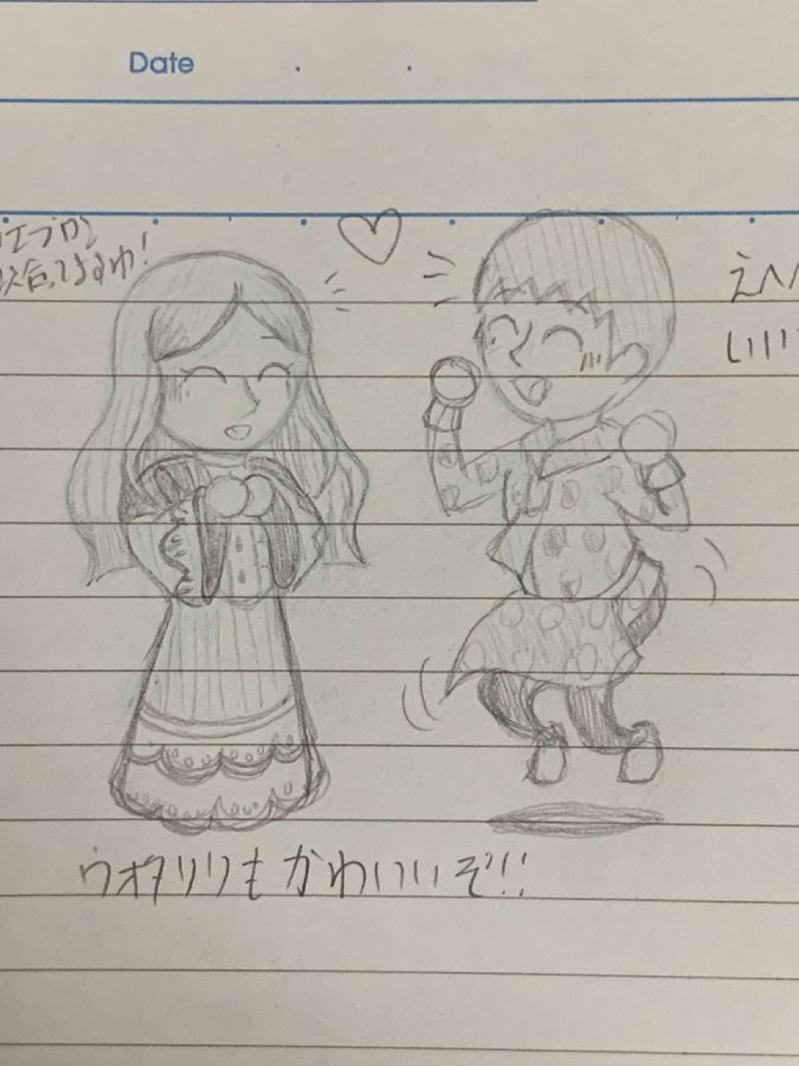 Date
エプロン
似合ってますわ!
えへへ
いい
ウオタリリもかわいいぞ!!